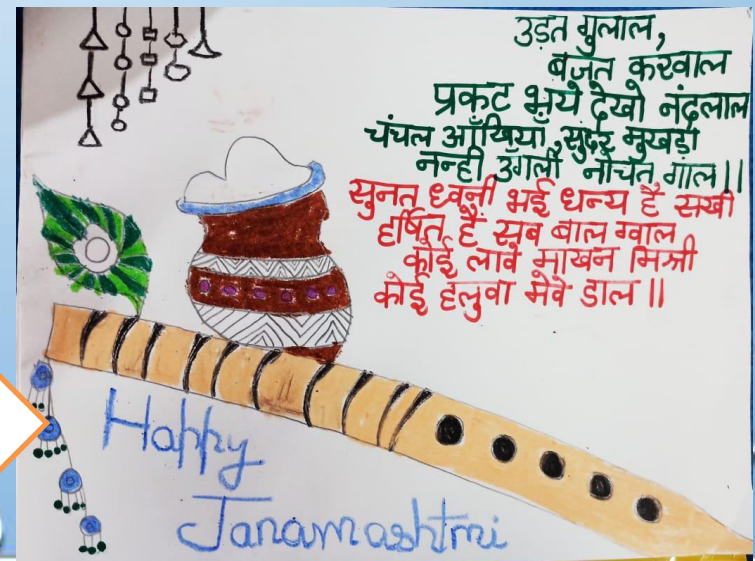 उड़त गुलाल,
बजत करवाल
प्रकट भये देखो नंदलाल
चंचल आँखियाँ, सुंदर मुखड़ा
नन्ही उँगली नोचत गाल||
सुनत ध्वनी भई धन्य है सखी
हर्षित हैं सब बाल ग्वाल
कोई लावे माखन मिश्री
कोई हलुवा मेवे डाल ||
Happy
Janamashtmi